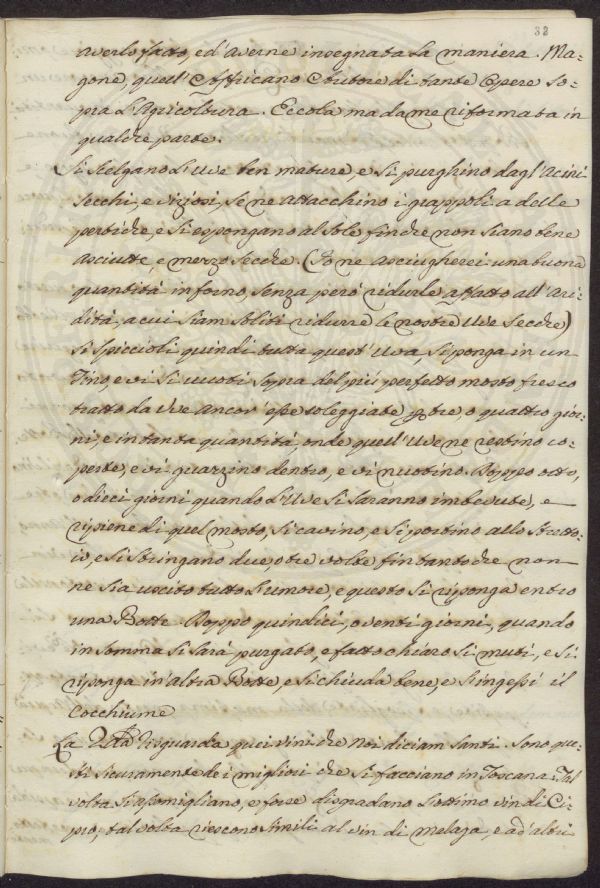 32
averlo fatto, ed'averne insegnata la maniera. Ma=
gone, quell'Affricano Autore di tante Opere so=
pra l'Agricoltura. Eccola ma da me riformata in
qualche parte.
Si scelgano l'uve ben mature, e si purghino dagl'acini
secchi, e viziosi, se ne attacchino i grappoli a delle
pertiche, e si espongano al Sole finche non siano bene
asciutte, e mezzo secche. (Io ne asciugherei una buona
quantità in forno, senza però ridurle affatto all'ari=
dità, a cui siam soliti ridurre le nostre Uve secche)
si spiccioli quindi tutta quest'uva, si ponga in un
Tino, e vi si vuoti sopra del più perfetto mosto fresco
tratto da Uve ancor'esse soleggiate p tre, o quattro gior=
ni, e in tanta quantità, onde quell'Uve ne restino co=
perte, e vi guazzino dentro, e vi nuotino. Doppo otto,
o dieci giorni quando l'Uve si saranno imbevute, e
ripiene di quel mosto, si cavino, e si portino allo stretto=
io, e si stringano due, o tre volte fintantoche non
ne sia uscito tutto l'umore, e questo si riponga entro
una Botte. Doppo quindici, o venti giorni, quando
in somma si sarà purgato, e fatto chiaro si muti, e si
riponga in'altra Botte, e si chiuda bene, e s'ingessi il
Cocchiume
La 2da risguarda quei vini che noi diciam Santi. Sono que=
sti sicuramente dei migliori che si facciano in Toscana. Tal
volta s'assomigliano, e forse disgradano l'ottimo vin di Ci=
pro, tal volta riescono simili al vin di Melaga, e ad'altri